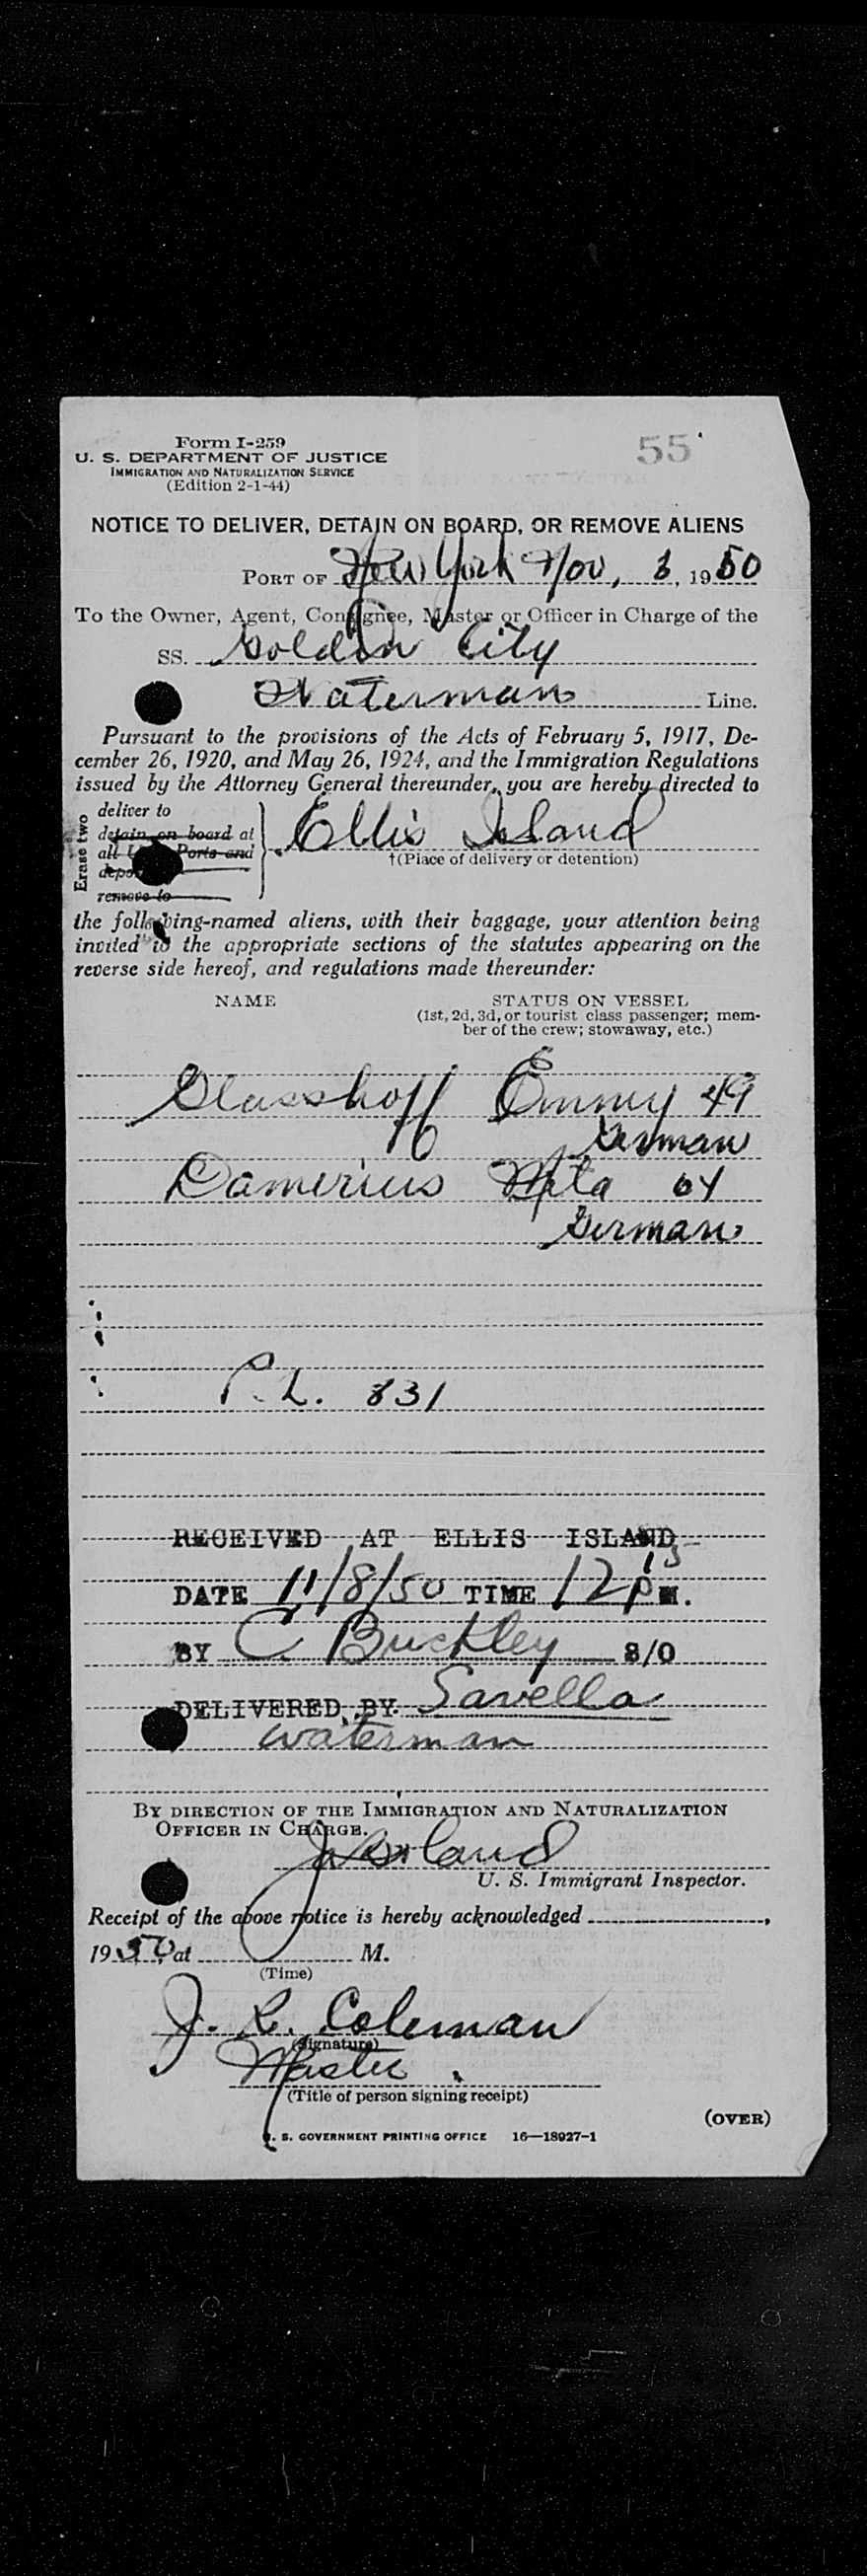 Form I-259
55
U. S. DEPARTMENT OF JUSTICE
IMMIGRATION AND NATURALIZATION SERVICE
(Edition 2-1-44)
NOTICE TO DELIVER, DETAIN ON BOARD, OR REMOVE ALIENS
PORT OF New York Nov, 8, 1950
To the Owner, Agent, Consignee, Master or Officer in Charge of the
SS. Golden City
Waterman Line.
Pursuant to the provisions of the Acts of February 5, 1917, De-
cember 26, 1920, and May 26, 1924, and the Immigration Regulations
issued by the Attorney General thereunder, you are hereby directed to
Erase two
deliver to
detain on board at
all U Ports and
depo
remove to
Ellis Island
†(Place of delivery or detention)
the following-named aliens, with their baggage, your attention being
invited to the appropriate sections of the statutes appearing on the
reverse side hereof, and regulations made thereunder:
NAME STATUS ON VESSEL
(1st, 2d, 3d, or tourist class passenger; mem-
ber of the crew; stowaway, etc.)
Glasshoff Emmy 49
German
Damerius Meta 64
German
P.L. 831
RECEIVED AT ELLIS ISLAND
DATE 11/8/50 TIME 12 15 P M.
BY C. Buckley S/O
DELIVERED BY Savella
Waterman
BY DIRECTION OF THE IMMIGRATION AND NATURALIZATION
OFFICER IN CHARGE.
U. S. Immigrant Inspector.
Receipt of the above notice is hereby acknowledged ,
1950, at M.
(Time)
J. R. Coleman
(Signature)
Master.
(Title of person signing receipt)
(OVER)
U. S. GOVERNMENT PRINTING OFFICE 16—18927-1